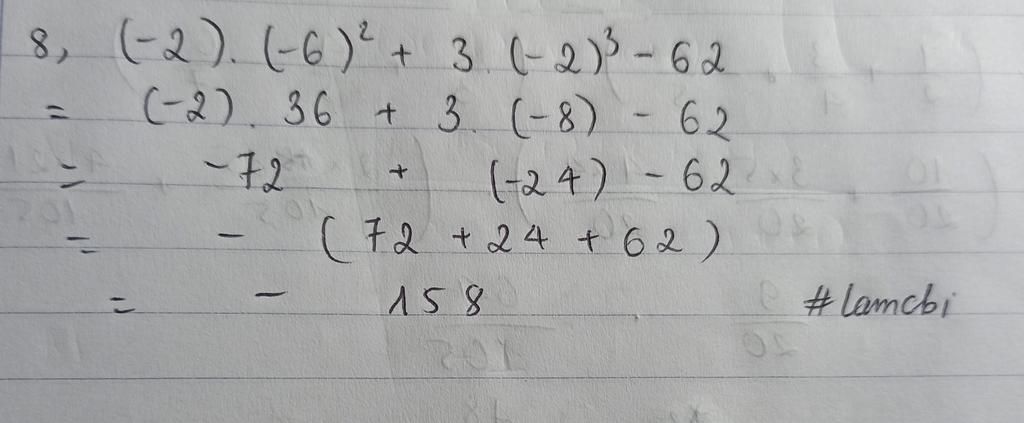 8, (-2). (-6)² + 3. (-2)³ - 62
= (-2). 36 + 3. (-8) - 62
= -72 + (-24) - 62
= - (72 + 24 + 62)
= - 158 #lamcbi